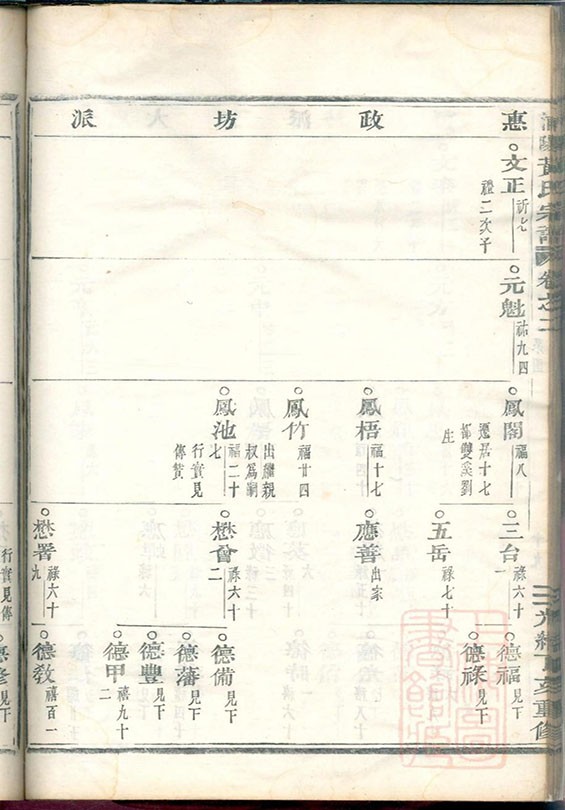 惠政坊派
文正 祈七
禮二次子
元魁 祐九四
鳳閣 福八
遷居十七
都雙溪劉
生
鳳梧 福十七
鳳竹 福廿四
出繼親
叔為嗣
鳳池 福二十
七
行實見
傳贊
三台 祿六十
一
五岳 祿七十
應善 出家
懋會 祿六十
二
懋署 祿六十
九
行實見傳
德福 見下
德祿 見下
德備 見下
德藩 見下
德豐 見下
德甲 禧九十
二
德教 禧百一
德修 見下
黃氏宗譜 卷之二
重修